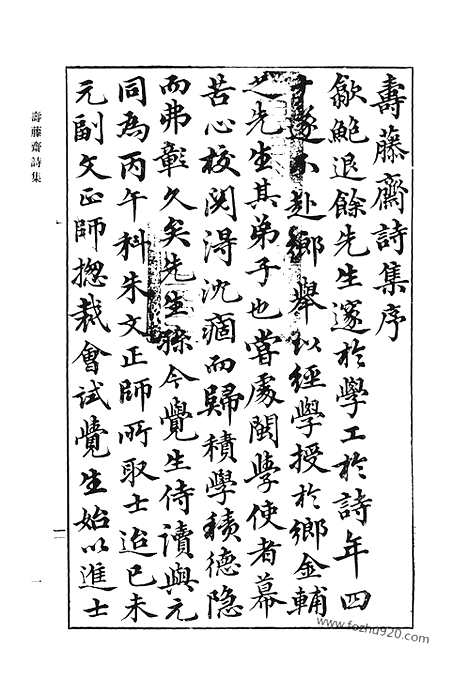 壽藤齋詩集序
歙鮑退餘先生邃於學工於詩年四
十遂不赴鄉舉以經學授於鄉金輔
之先生其弟子也嘗處閩學使者幕
苦心校閱得沈痼而歸積學績德隐
而弗彰久矣先生孫今覺生侍讀與元
同為丙午科朱文正師所取士迨己未
元副文正師揔裁會試覺生始以進士
壽藤齋詩集
一
www.fozhu920.com